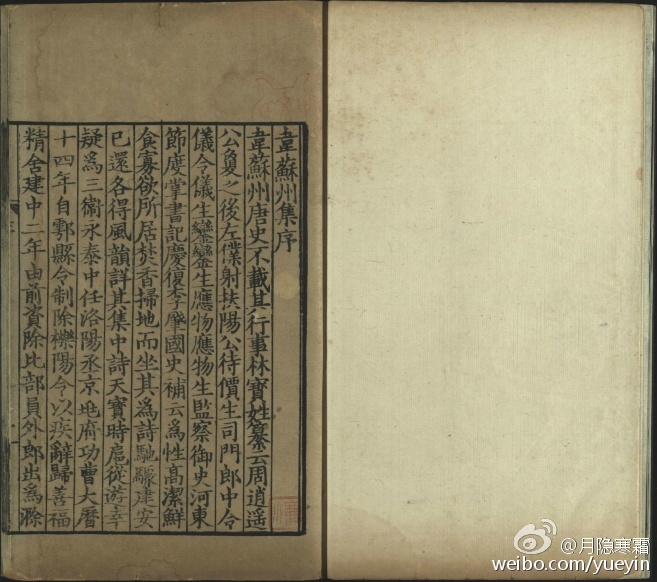 韋蘇州集序
韋蘇州唐史不載其行事林寶姓纂云周逍遥
公夐之後左僕射扶陽公待價生司門郎中令
儀令儀生鑾鑾生應物應物生監察御史河東
節度掌書記慶復李肇國史補云爲性高潔鮮
食寡欲所居焚香掃地而坐其爲詩馳驟建安
已還各得風韻詳其集中詩天寶時扈從遊幸
疑爲三衛永泰中任洛陽丞京兆府功曹大曆
十四年自鄠縣令制除櫟陽令以疾辭歸善福
精舍建中二年由前資除比部員外郎出爲滁
@月隐寒霜
weibo.com/yueyin